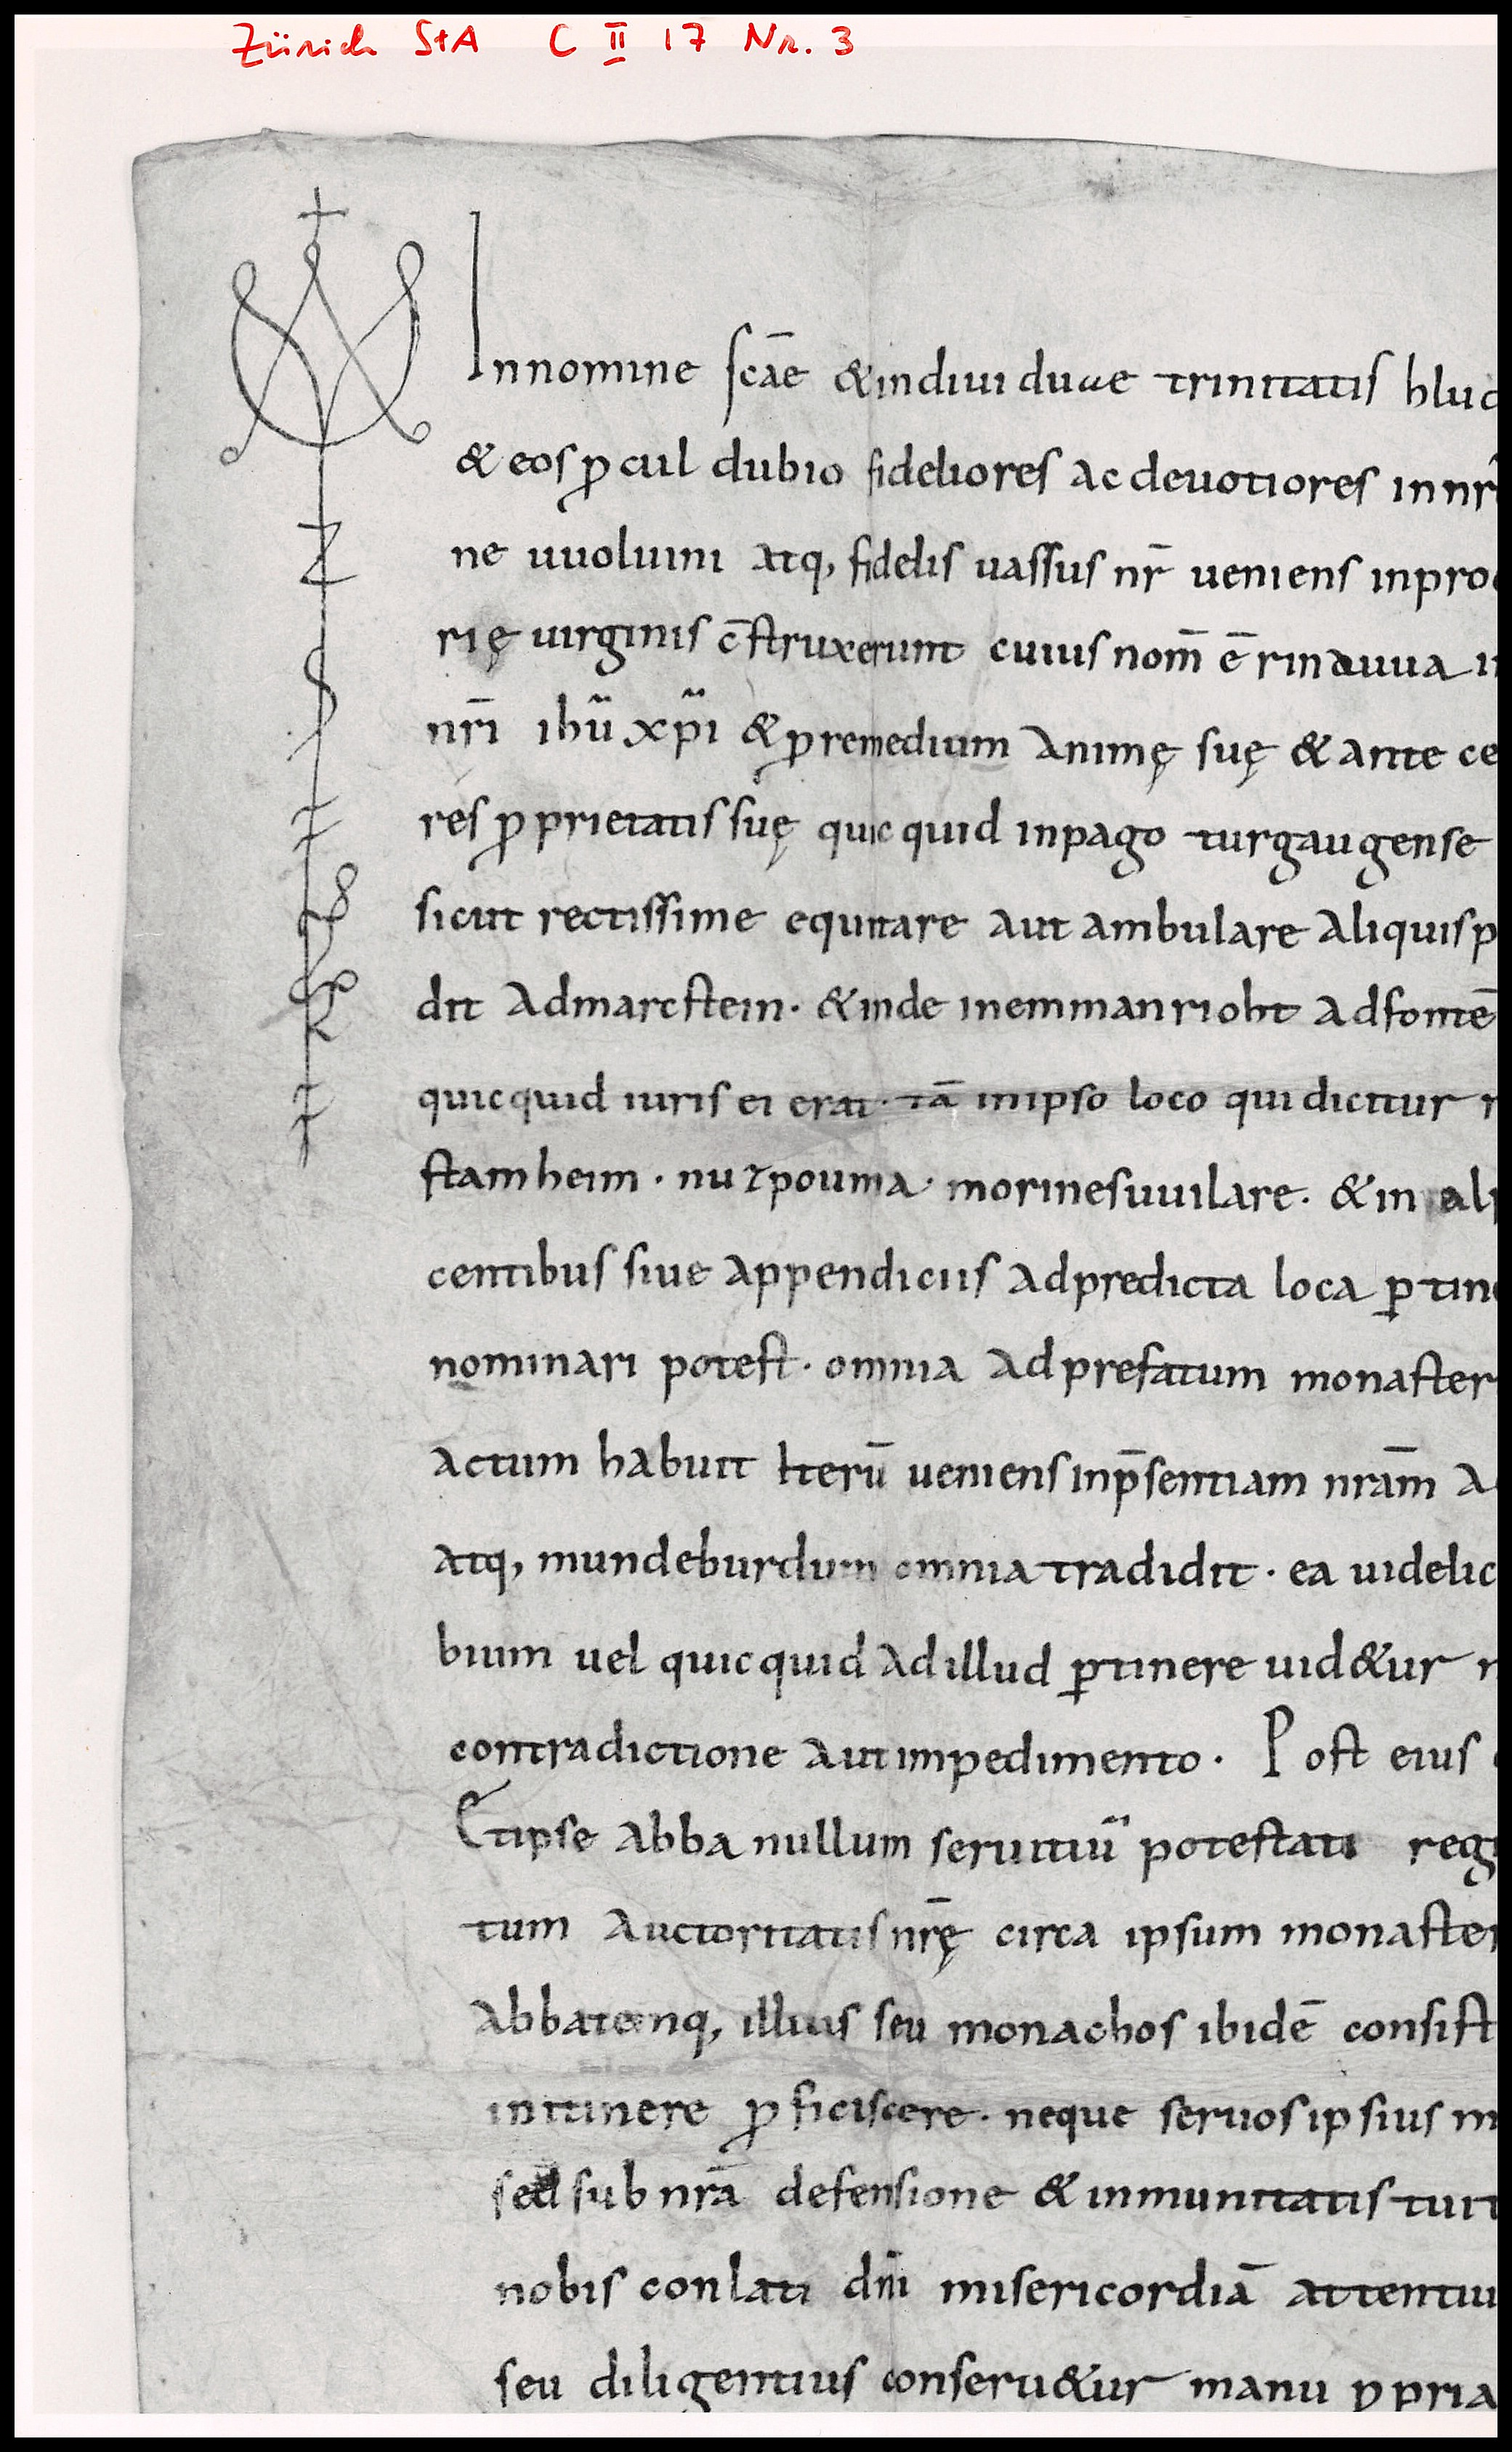 Zürich StA C II 17 Nr. 3
Innomine scāe &indiuiduae trinitatis hlud
& eos ꝓcul dubio fideliores ac deuotiores innr̄
ne uuoluini atq, fidelis uassus nr̄ ueniens inpro
rię uirginis c̄struxerunt cuius nom̄ ē rinauua
nr̄i ihū xp̄i &ꝓremedium animę suę &ante ce
res ꝓprietatis suę quic quid inpago turgaugense
sicut rectissime equitare aut ambulare aliquis p
dit admarcstein · &inde inemmanrioht adfontē
quicquid iuris ei erat · tā inipso loco quidicitur
stamheim · nuzpouma · morinesuuilare · &in ali
centibus siue appendiciis adpredicta loca ꝑtine
nominari potest · omnia adprefatum monaster
actum habuit Iterū ueniens inp̄sentiam nrām a
atq, mundeburdum omnia tradidit · ea uidelic
bium uel quicquid adillud ꝑtinere uid&ur
contradictione aut impedimento · Post eius
Etipse abba nullum seruitiū potestati reg
tum auctoritatis nr̄ę circa ipsum monaster
abbatemq, illius seu monachos ibidē consist
initinere ꝓficiscere · neque seruos ipsius m
sed sub nrā defensione &inmunitatis tuit
nobis conlati dn̄i misericordiā attentiu
seu diligentius conseru&ur manu ꝓpria